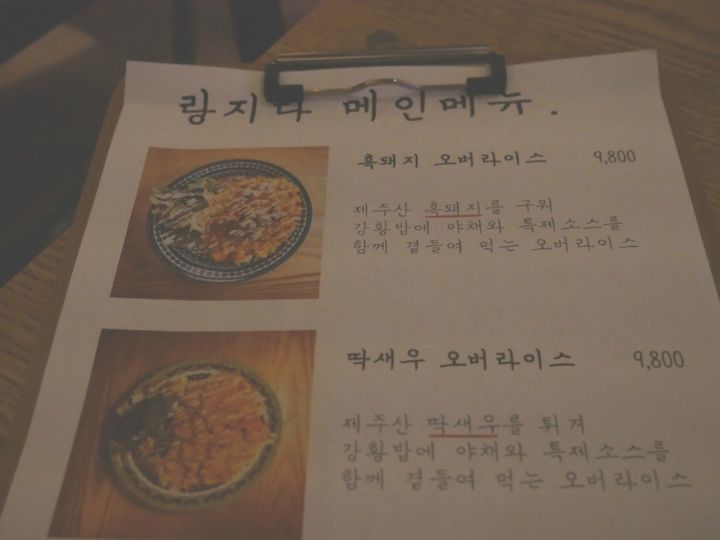 랑지다 메인메뉴.
흑돼지 오버라이스 9,800
제주산 흑돼지를 구워
강황밥에 야채와 특제소스를
함께 곁들여 먹는 오버라이스
딱새우 오버라이스 9,800
제주산 딱새우를 튀겨
강황밥에 야채와 특제소스를
함께 곁들여 먹는 오버라이스